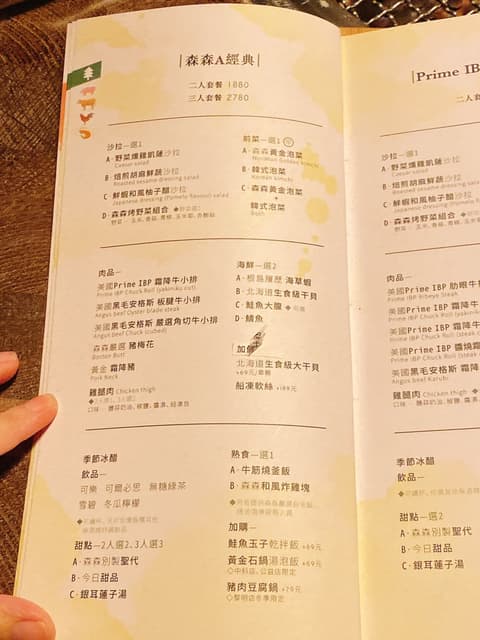 森森A經典
二人套餐 1880
三人套餐 2780
沙拉—選1
A·野菜燻雞凱薩沙拉
Caesar salad
B·焙煎胡麻鮮蔬沙拉
Roasted sesame dressing salad
C·鮮蝦和風柚子醋沙拉
Japanese dressing (Pomelo flavour) salad
D·森森烤野菜組合
前菜—選1
A·森森黃金泡菜
B·韓式泡菜
Korean kimchi
C·森森黃金泡菜
+
韓式泡菜
Both
肉品—
美國Prime IBP 霜降牛小排
Prime IBP Chuck Roll (yakiniku cut)
美國黑毛安格斯 板腱牛小排
Angus beef Oyster blade steak
美國黑毛安格斯 嚴選角切牛小排
Angus beef Chuck (cubed)
森森嚴選 豬梅花
Boston Butt
黃金 霜降豬
Pork Neck
雞腿肉 Chicken thigh
海鮮—選2
A·根島履歷 海草蝦
B·北海道生食級干貝
C·鮭魚大腹
D·鯖魚
北海道生食級大干貝
+69元/單顆
船凍軟絲 +189元
季節冰醋
飲品—
可樂 可爾必思 無糖綠茶
雪碧 冬瓜檸檬
甜點—2人選2、3人選3
A·森森別製聖代
B·今日甜品
C·銀耳蓮子湯
熟食—選1
A·牛筋燒釜飯
B·森森和風炸雞塊
加購—
鮭魚玉子乾拌飯 +69元
黃金石鍋湯泡飯 +69元
◇中科店、公益店限定
豬肉豆腐鍋 +79元
◇黎明店冬季限定
Prime IB
二人
沙拉—選1
A·野菜燻雞凱薩沙拉
Caesar salad
B·焙煎胡麻鮮蔬沙拉
Roasted sesame dressing salad
C·鮮蝦和風柚子醋沙
Japanese dressing (Pomelo flavour)
D·森森烤野菜組合
肉品—
美國Prime IBP 肋眼牛
Prime IBP Ribeye Steak
美國Prime IBP 霜降牛
美國Prime IBP 霜降牛
美國Prime IBP 醬燒霜
美國黑毛安格斯 霜降
Angus beef Karubi
雞腿肉 Chicken thigh
季節冰醋
飲品—
甜點—選2
A·森森別製聖代
B·今日甜品
C·銀耳蓮子湯